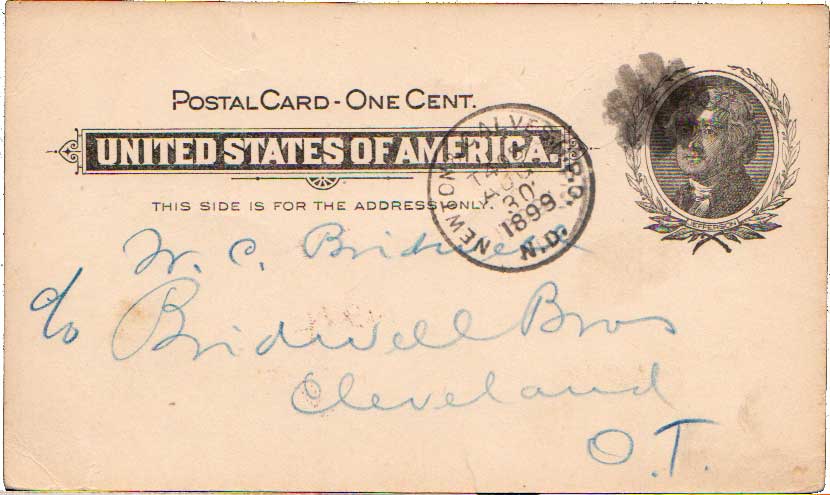 POSTAL CARD - ONE CENT.
UNITED STATES OF AMERICA.
THIS SIDE IS FOR THE ADDRESS ONLY.
NEWTON & GALVESTON R.P.O.
AUG
30
1899
N.D.
JEFFERSON
W. C. Bridwell
c/o Bridwell Bros
Cleveland
O.T.